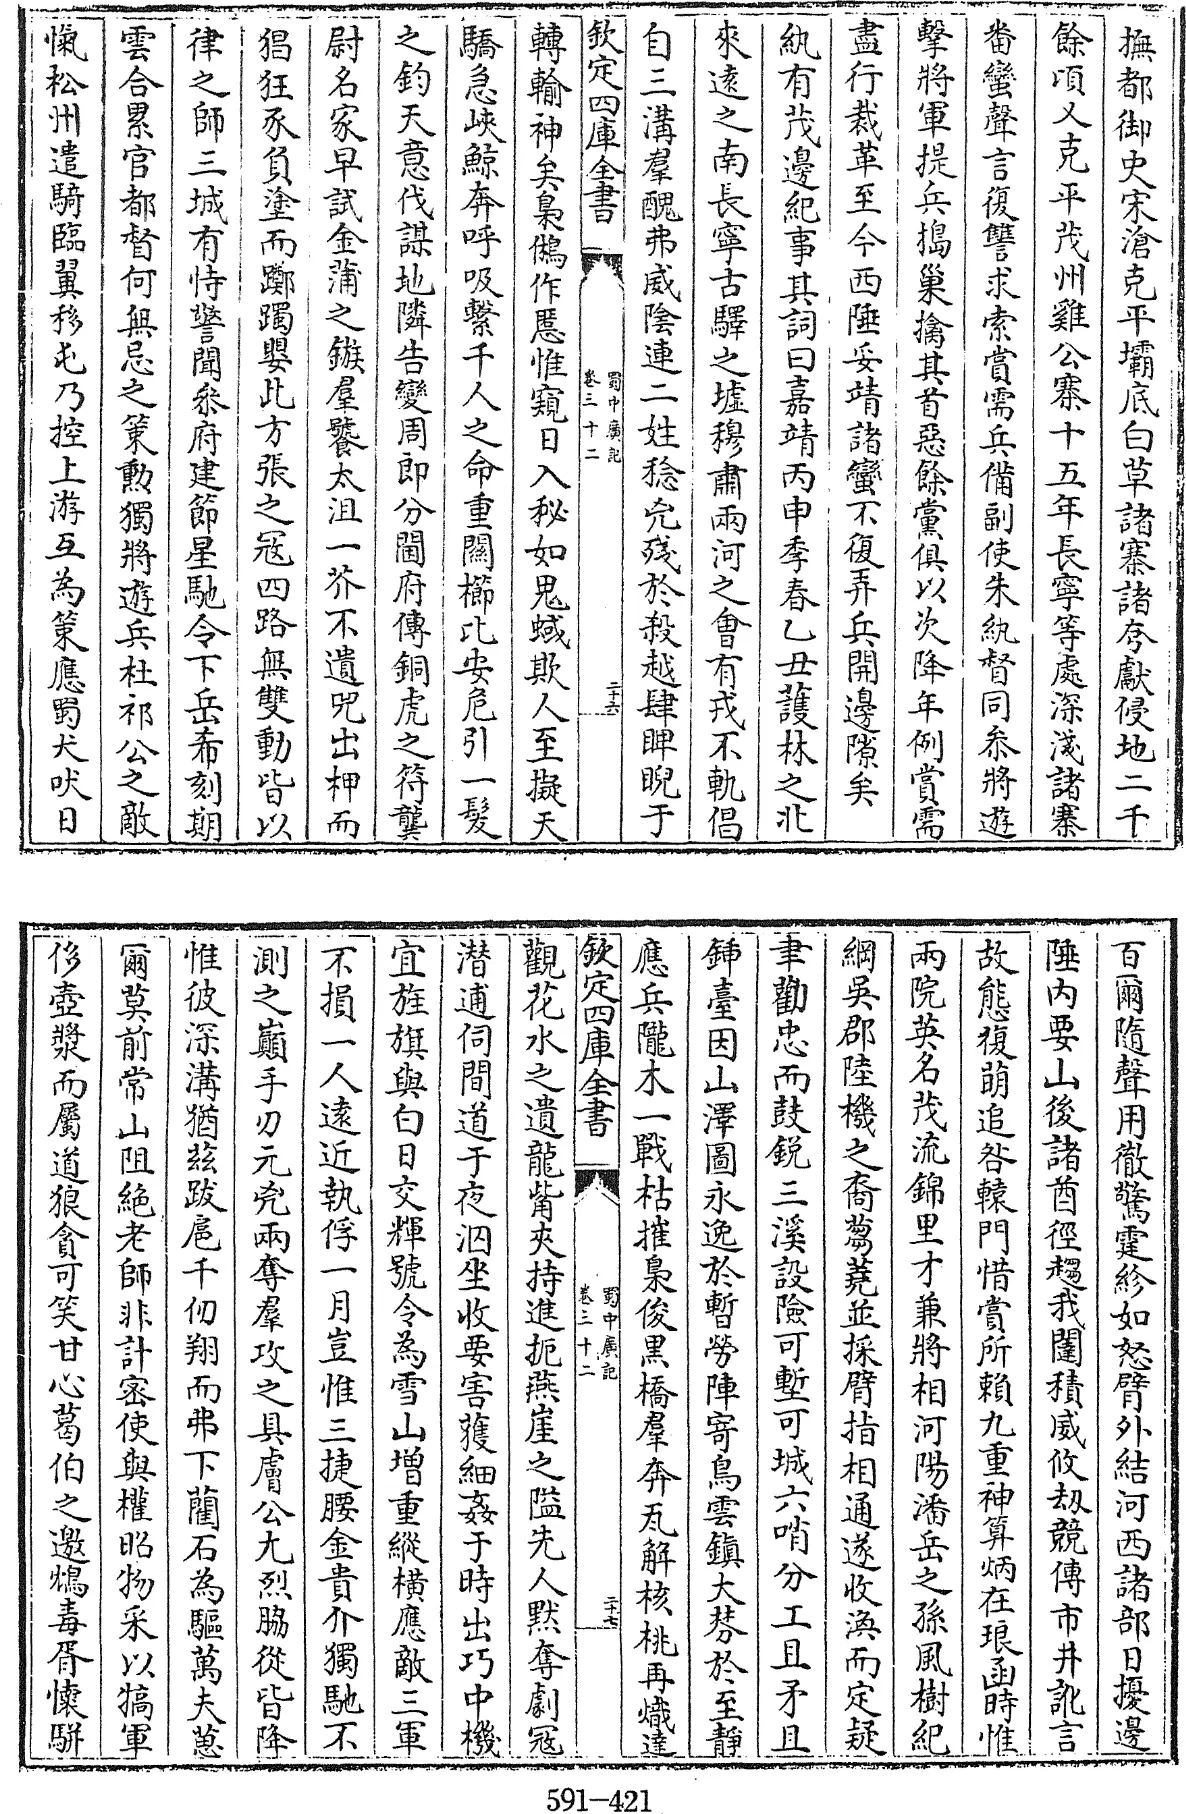 撫都御史宋滄克平壩底白草諸寨諸夯獻侵地二千
餘頃又克平茂州雞公寨十五年長寧等處深淺諸寨
畨蠻聲言復讐求索賞需兵備副使朱紈督同叅將遊
擊將軍提兵搗巢擒其首惡餘黨俱以次降年例賞需
盡行裁革至今西陲妥靖諸蠻不復弄兵開邊隙矣
紈有茂邊紀事其詞曰嘉靖丙申季春乙丑護林之北
來逺之南長寧古驛之墟穆肅兩河之㑹有戎不軌倡
自三溝羣醜弗威陰連二姓稔宂殘於殺越肆睥睨于
欽定四庫全書
蜀中廣記
卷三十二
二十六
轉輸神矣梟鵂作慝惟窺日入秘如鬼蜮欺人至擬天
驕急峽鯨奔呼吸繫千人之命重關櫛比安危引一髮
之鈞天意伐謀地隣告變周即分閫府傳銅虎之符龔
尉名家早試金蒲之鏃羣饕太沮一芥不遺兕出柙而
猖狂豕負塗而躑躅嬰此方張之冦四路無雙動皆以
律之師三城有恃警聞叅府建節星馳令下岳希刻期
雲合累官都督何無忌之策勲獨將遊兵杜祁公之敵
愾松州遣騎臨翼移屯乃控上游互為策應蜀犬吠日
百爾隨聲用徹驚霆紾如怒臂外結河西諸部日擾邊
陲内要山後諸酋徑趨我闉積威攸刼競傳市井訛言
故態復萌追咎轅門惜賞所頼九重神算炳在琅函時惟
兩院英名茂流錦里才兼將相河陽潘岳之孫風樹紀
綱吳郡陸機之裔蒭蕘並採臂指相通遂收渙而定疑
聿勸忠而鼓鋭三溪設險可塹可城六哨分工且矛且
鍤臺因山澤圖永逸於暫勞陣寄鳥雲鎮大棼於至靜
應兵隴木一戰枯摧梟俊黒橋羣奔瓦解核桃再熾達
欽定四庫全書
蜀中廣記
卷三十二
二十七
觀花水之遺龍觜夾持進扼燕崖之隘先人黙奪劇冦
潜逋伺間道于夜泅坐收要害獲細姦于時出巧中機
宜旌旗與白日交輝號令為雪山增重縱横應敵三軍
不損一人逺近執俘一月豈惟三捷腰金貴介獨馳不
測之巔手刃元兇兩奪羣攻之具膚公尤烈脇從皆降
惟彼深溝猶兹跋扈千仞翔而弗下藺石為驅萬夫蒽
爾莫前常山阻絶老師非計密使與權昭物采以犒軍
侈壺漿而屬道狼貪可笑甘心葛伯之邀鴆毒胥懐駢
591—421